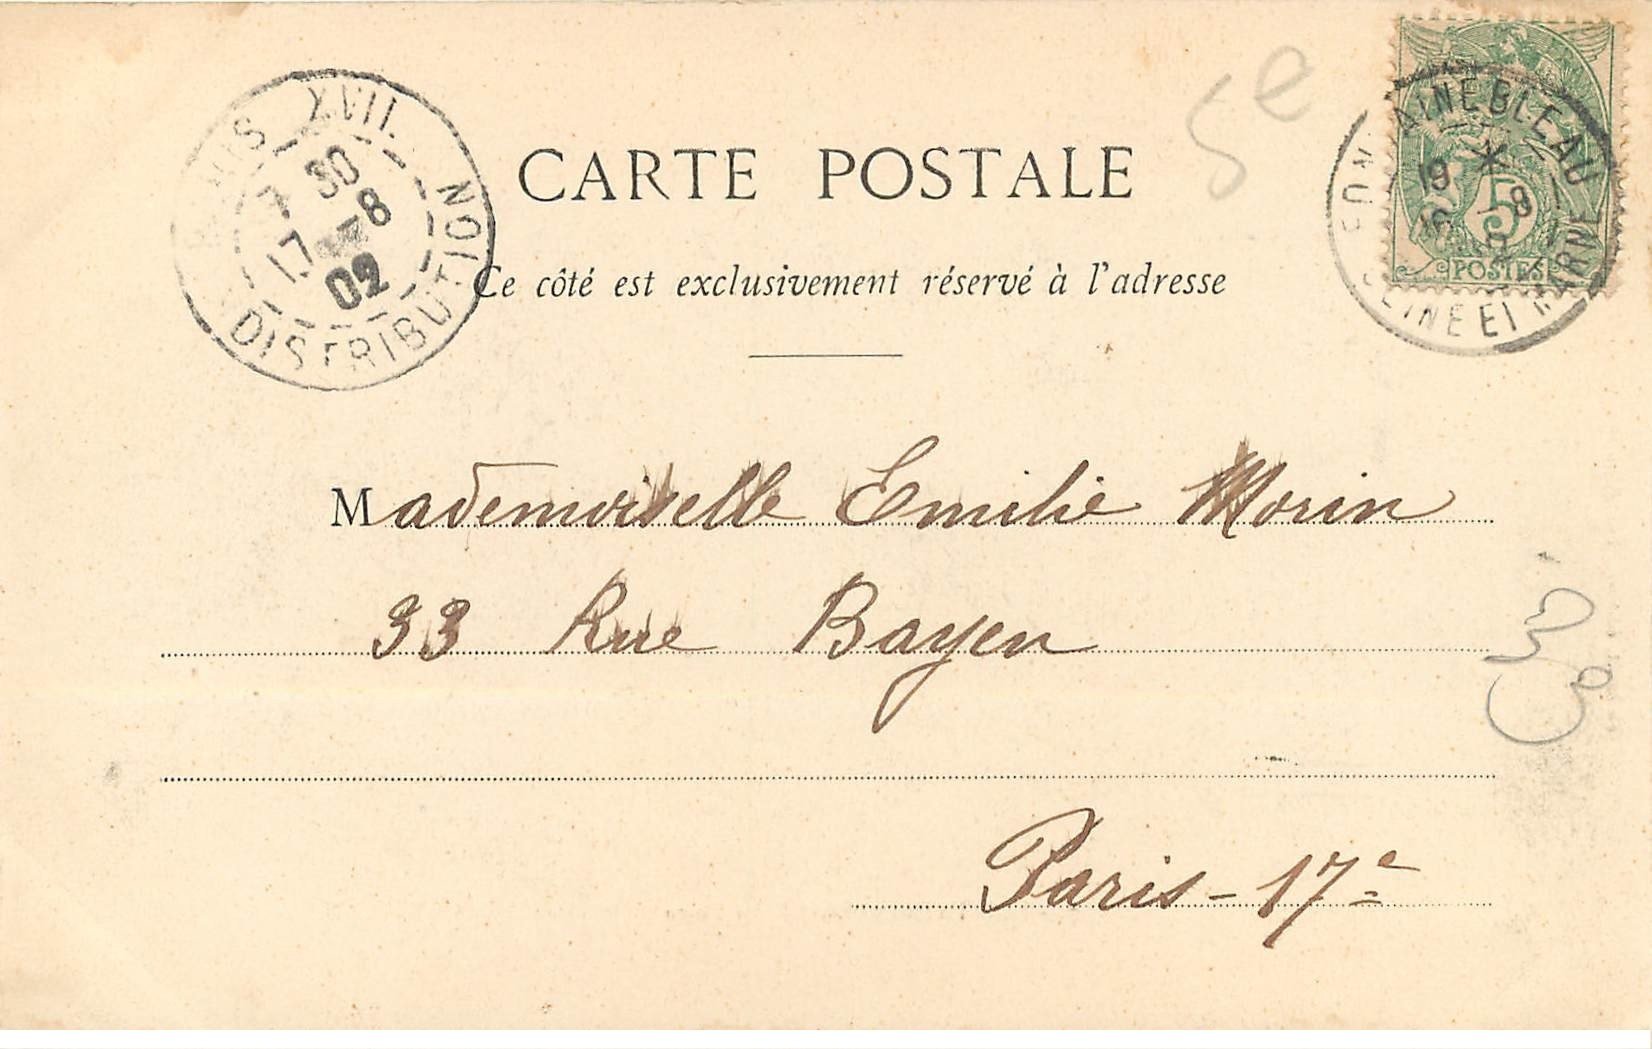 PARIS XVII.
7 30
17 -8
02
DISTRIBUTION
5e
CARTE POSTALE
Ce côté est exclusivement réservé à l'adresse
FONTAINEBLEAU
19 *
16 -8
SEINE ET MARNE
5
POSTES
Mademoiselle Emilie Morin
33 Rue Bayen
Paris - 17e